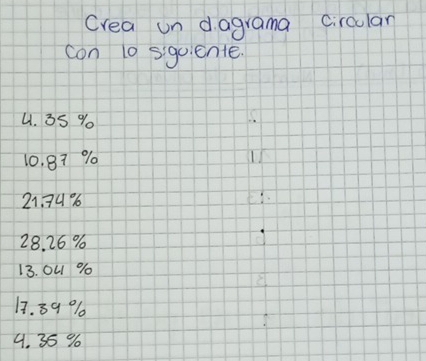 Crea un diagrama circular
con lo siguiente.
4.35 %
10.87 %
21.74 %
28.26 %
13.04 %
17.39 %
4.35 %